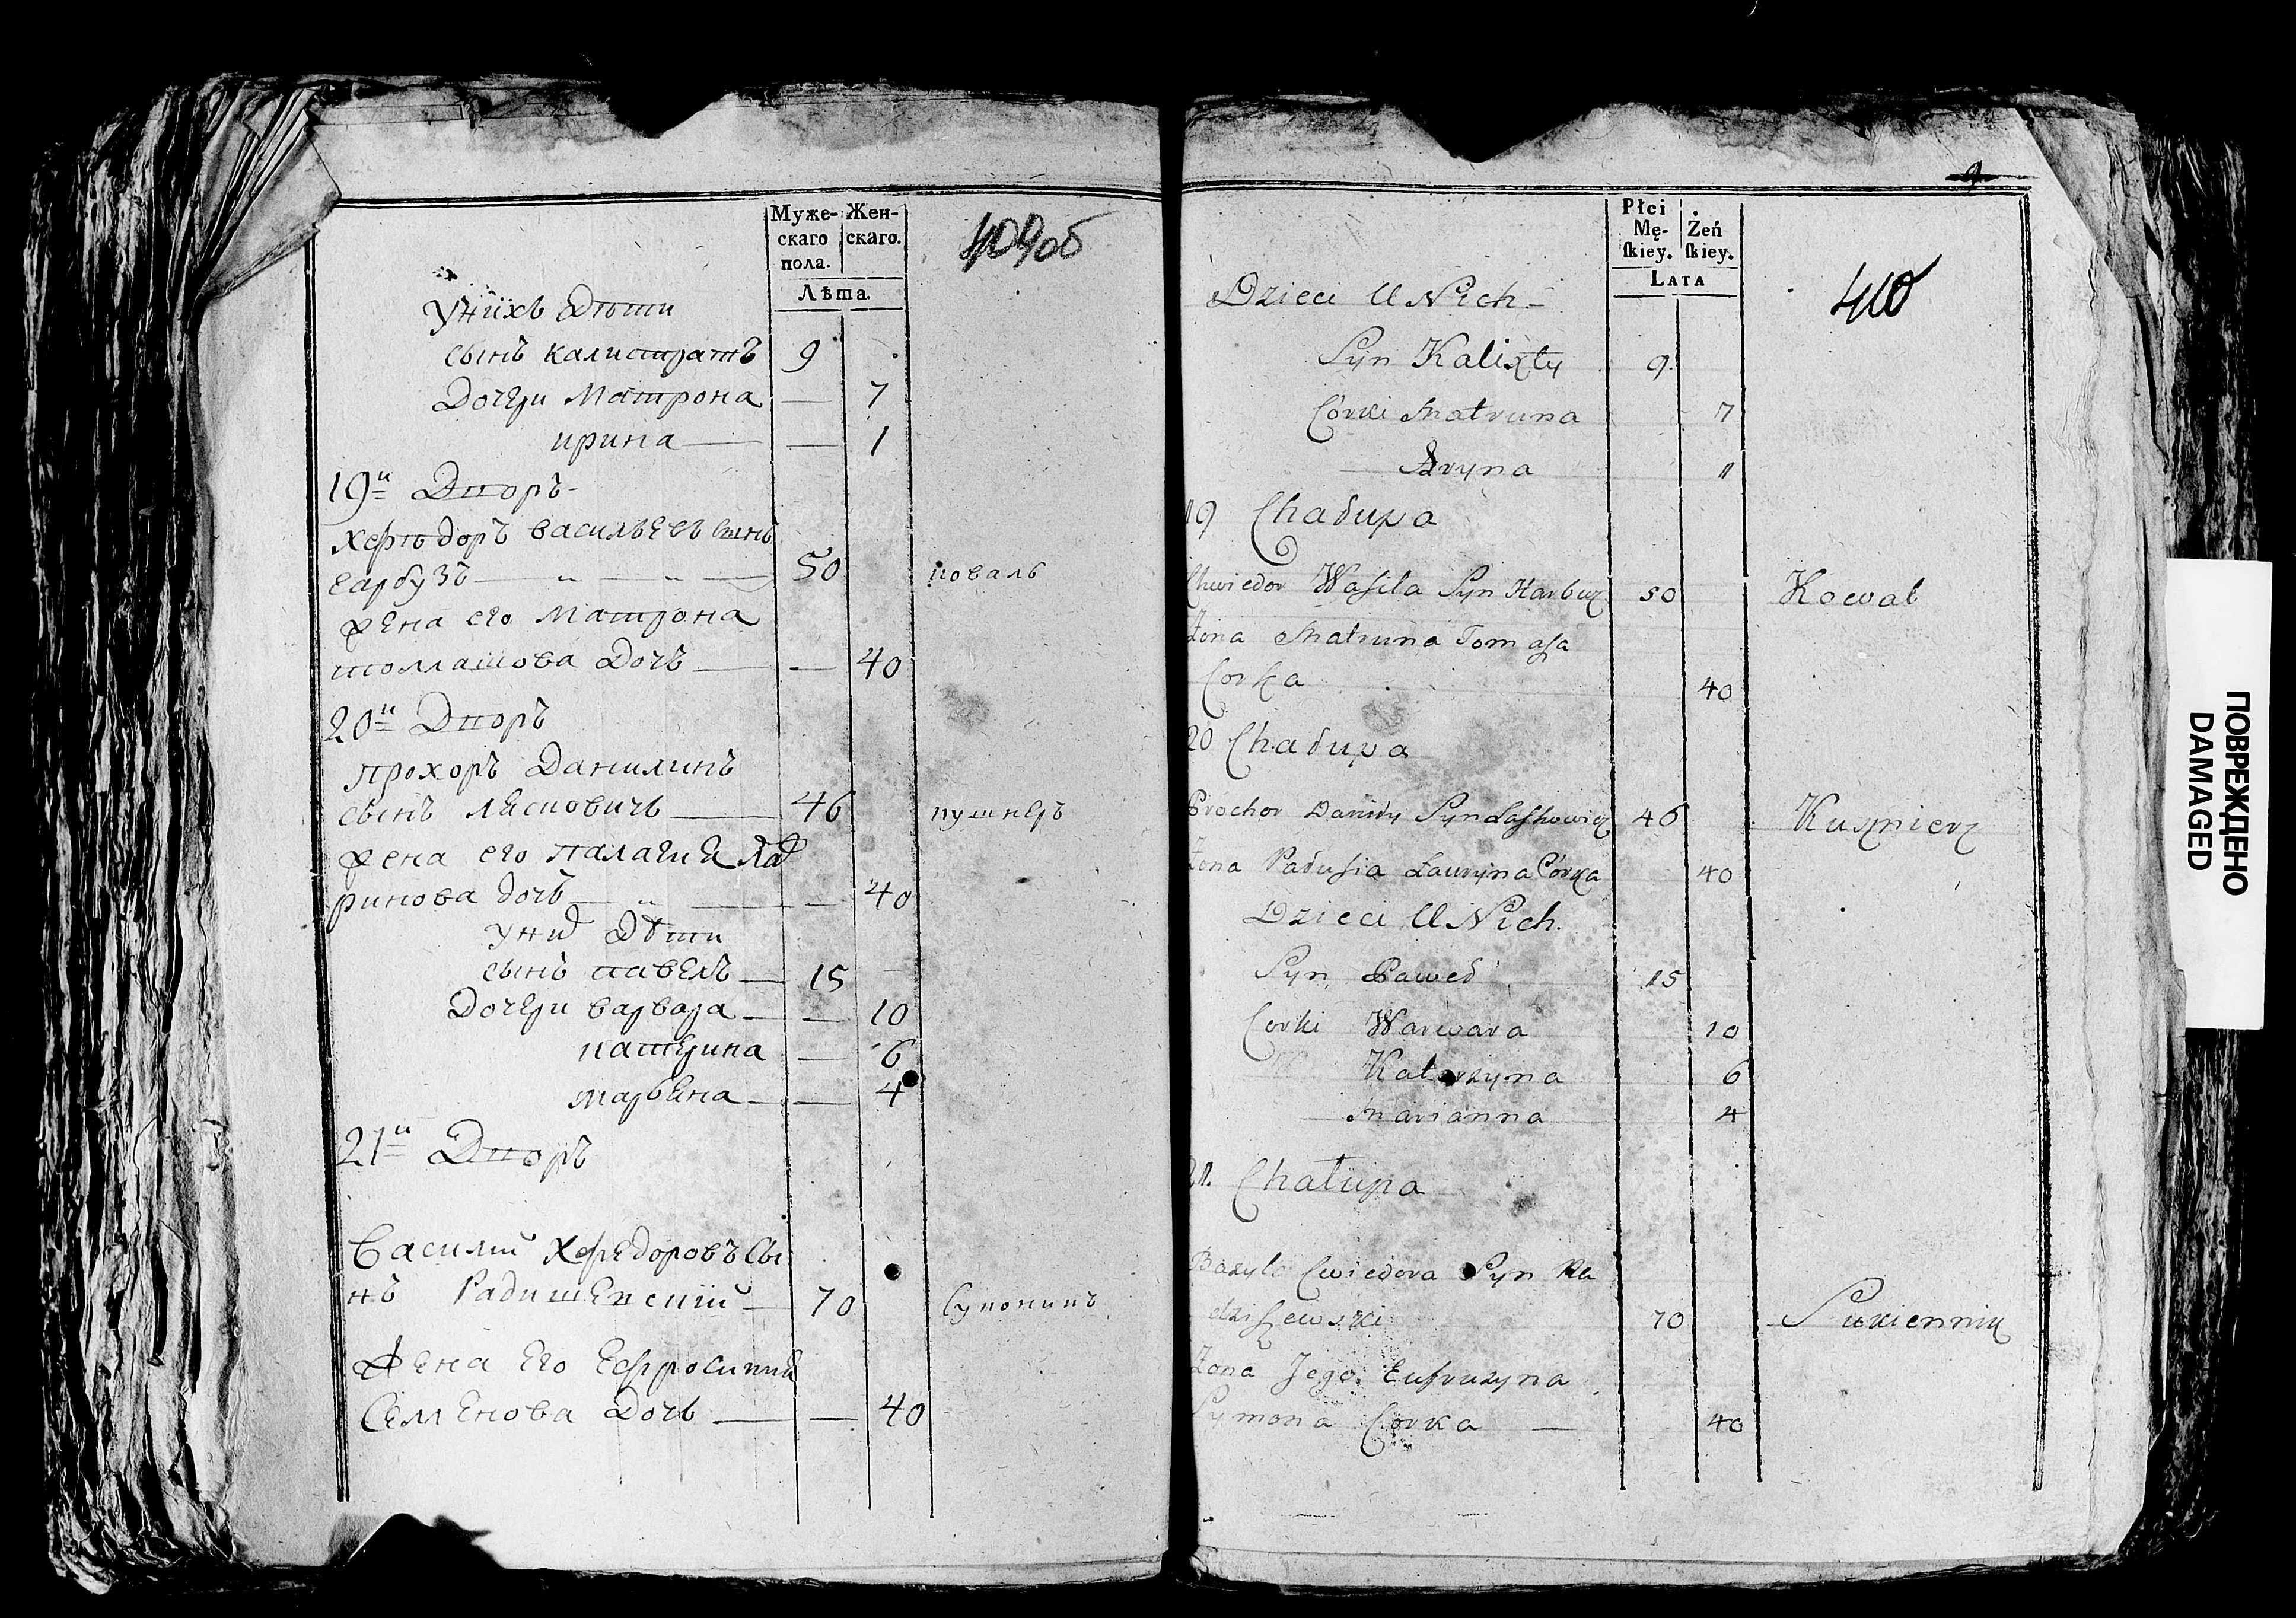 Муже-
скаго
пола.
Жен-
скаго.
Лѣта.
409об
Унихъ Дѣти
сынъ калистратъ 9
Дочери Матрона — 7
ирина — — 1
19й Дворъ
Хфедоръ васильевъ сынъ
гарбузъ — „ — „ — 50 коваль
жена его Матрона
томашова Дочь — — 40
20й Дворъ
прохоръ Данилинъ
сынъ ласковичъ — 46 кушнеръ
жена его палагия лав
ринова дочь — „ — — 40
уних Дѣти
сынъ павелъ — 15
Дочери варвара — — 10
катерина — 6
марьена — — 4
21й Дворъ
Василий Хфедоровъ Сы
нъ Радишевский — 70 Сукониикъ
Жена Его Ефросиния
Семенова Дочь — — 40
Płci
Mę-
ſkiey.
Żeń
ſkiey.
LATA
410
Dzieci U Nich —
Syn Kalixty 9
Córki Matruna 7
— Aryna 11
19 Chałupa
Chwiedor Waſila Syn Harbuz 50 Kowal
Żona Matruna Tomaſa
Corka 40
20 Chałupa
Prochor Daniły Syn Laſkowicz 46 Kuznierz
Żona Pałuſia Lauryna Córka 40
Dzieci U Nich.
Syn Paweł 15
Corki Warwara 10
Katarzyna 6
— Marianna 4
21. Chałupa
Bazyli Cwiedora Syn Ra
dziſzewski 70 Sukiennik
Żona Jego Eufruzyna
Symona Corka — 40
ПОВРЕЖДЕНО
DAMAGED